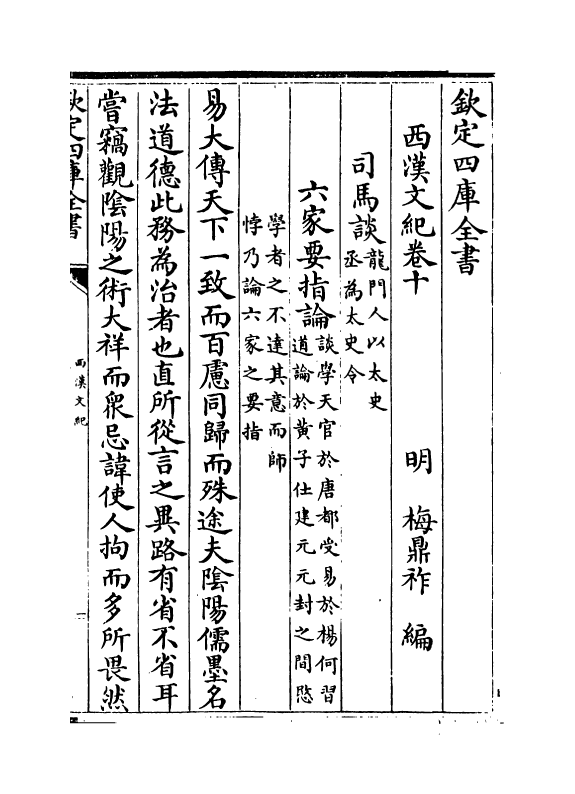 欽定四庫全書
西漢文紀卷十
明 梅鼎祚 編
司馬談
龍門人以太史
丞為太史令
六家要指論
談學天官於唐都受易於楊何習
道論於黃子仕建元元封之間愍
學者之不達其意而師
悖乃論六家之要指
易大傳天下一致而百慮同歸而殊途夫陰陽儒墨名
法道德此務為治者也直所從言之異路有省不省耳
嘗竊觀陰陽之術大祥而衆忌諱使人拘而多所畏然
欽定四庫全書
西漢文紀
一